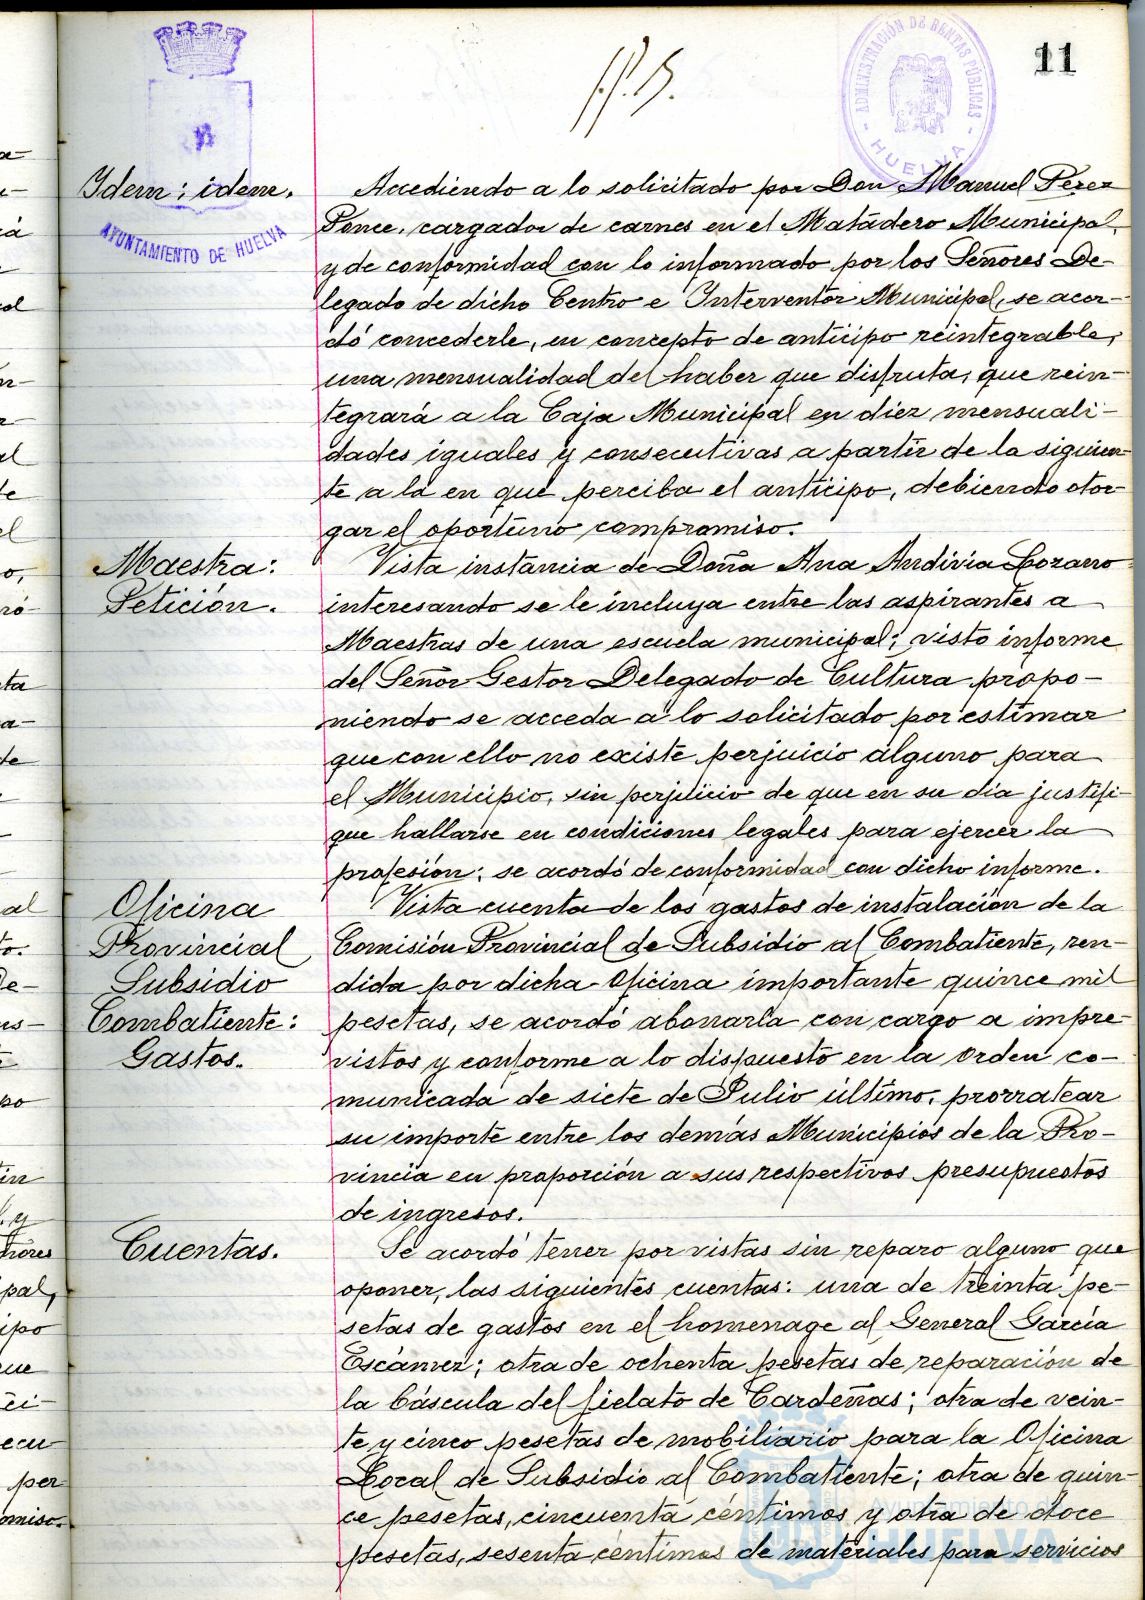 11
ADMINISTRACIÓN DE RENTAS PÚBLICAS
HUELVA
AYUNTAMIENTO DE HUELVA
Idem: idem.
Accediendo a lo solicitado por Don Manuel Pérez
Ponce, cargador de carnes en el Matadero Municipal,
y de conformidad con lo informado por los Señores De-
legado de dicho Centro e Interventor Municipal, se acor-
dó concederle, en concepto de anticipo reintegrable,
una mensualidad del haber que disfruta, que rein-
tegrará a la Caja Municipal en diez mensuali-
dades iguales y consecutivas a partir de la siguien-
te a la en que perciba el anticipo, debiendo otor-
gar el oportuno compromiso.
Maestra:
Petición.
Vista instancia de Doña Ana Andivia Lozano
interesando se le incluya entre las aspirantes a
Maestras de una escuela municipal; visto informe
del Señor Gestor Delegado de Cultura propo-
niendo se acceda a lo solicitado por estimar
que con ello no existe perjuicio alguno para
el Municipio, sin perjuicio de que en su día justifi-
que hallarse en condiciones legales para ejercer la
profesión; se acordó de conformidad con dicho informe.
Oficina
Provincial
Subsidio
Combatiente:
Gastos.
Vista cuenta de los gastos de instalación de la
Comisión Provincial de Subsidio al Combatiente, ren-
dida por dicha Oficina importante quince mil
pesetas, se acordó abonarla con cargo a impre-
vistos y conforme a lo dispuesto en la Orden co-
municada de siete de Julio último, prorratear
su importe entre los demás Municipios de la Pro-
vincia en proporción a sus respectivos presupuestos
de ingresos.
Cuentas.
Se acordó tener por vistas sin reparo alguno que
oponer, las siguientes cuentas: una de treinta pe-
setas de gastos en el homenage al General García
Escámez; otra de ochenta pesetas de reparación de
la báscula del fielato de Cardeñas; otra de vein-
te y cinco pesetas de mobiliario para la Oficina
Local de Subsidio al Combatiente; otra de quin-
ce pesetas, cincuenta céntimos y otra de doce
pesetas, sesenta céntimos de materiales para servicios
Ayuntamiento de
HUELVA